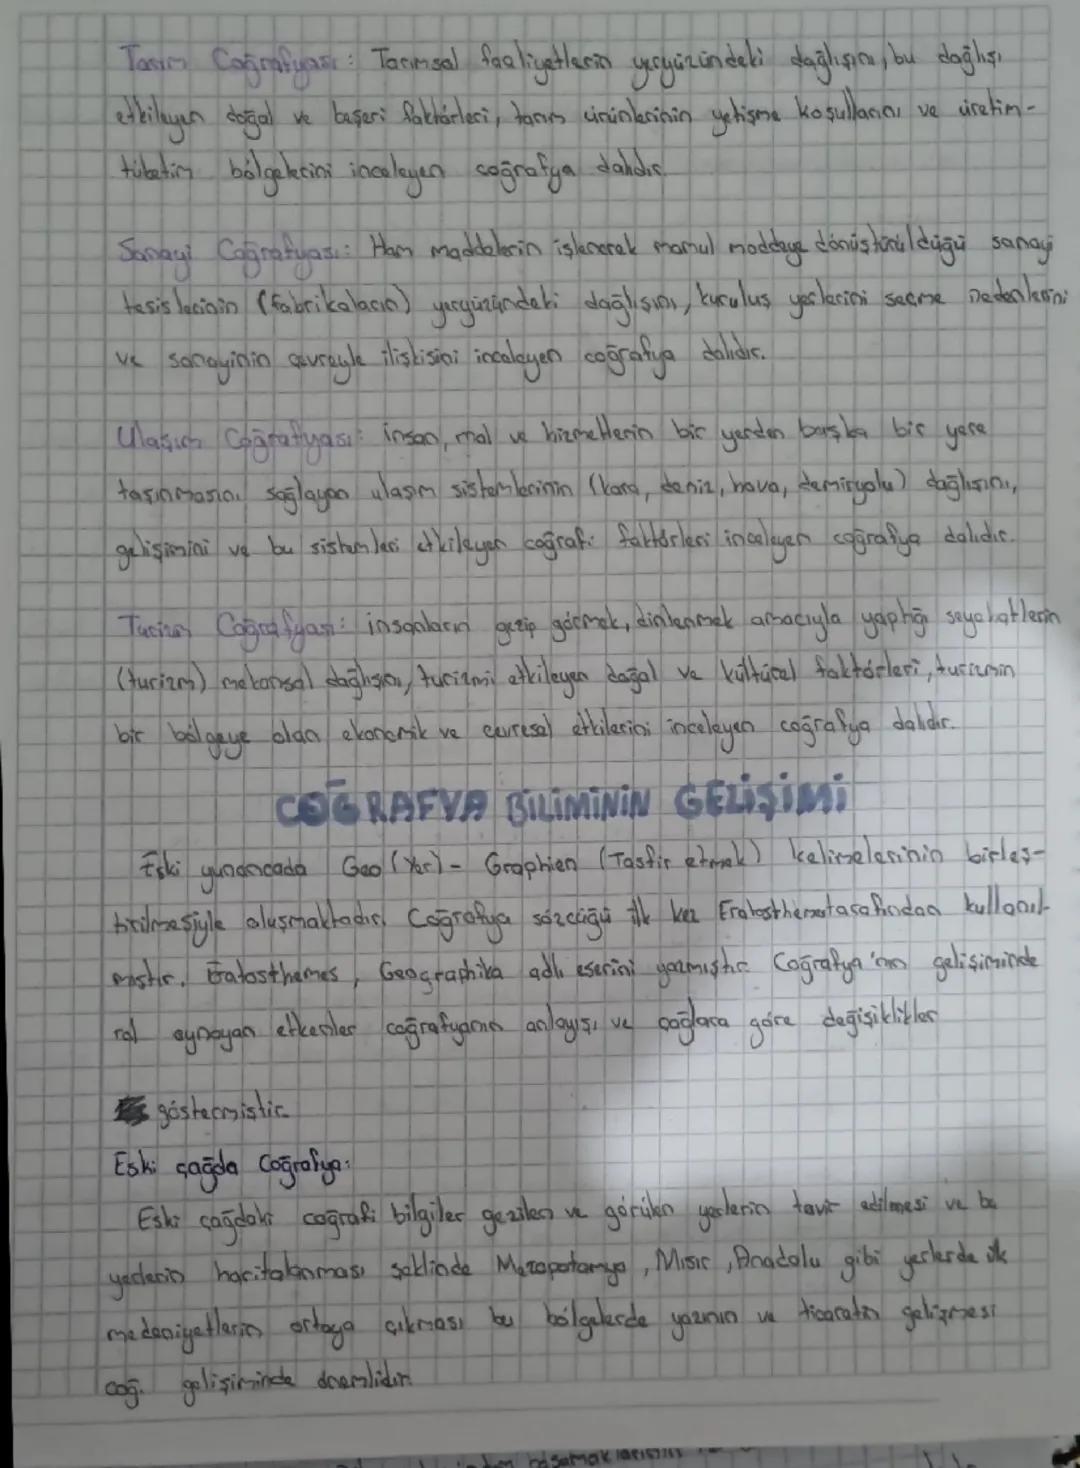 Tarım Coğrafyası: Tarımsal faaliyetlerin yeryüzündeki dağılışını, bu dağılışı
etkileyen doğal ve beşeri faktörleri, tarım ürünlerinin yetişme koşullarını ve üretim-
tüketim bölgelerini inceleyen coğrafya dalıdır.
Sanayi Coğrafyası: Ham maddelerin işlenerek mamul maddeye dönüştürüldüğü sanayi
tesislerinin (fabrikaların) yeryüzündeki dağılışını, kuruluş yerlerini seçme nedenlerini
ve sanayinin çevreyle ilişkisini inceleyen coğrafya dalıdır.
Ulaşım Coğrafyası: insan, mal ve hizmetlerin bir yerden başka bir yere
taşınmasını sağlayan ulaşım sistemlerinin (kara, deniz, hava, demiryolu) dağlışını,
gelişimini ve bu sistemleri etkileyen coğrafi faktörleri inceleyen coğrafya dalıdır.
Turizm Coğrafyası: insanların gezip görmek, dinlenmek amacıyla yaptığı seyahatlerin
(turizm) mekansal dağlışını, turizmi etkileyen doğal ve kültürel faktörleri, turizmin
bir bölgeye olan ekonomik ve çevresel etkilerini inceleyen coğrafya dalıdır.
COĞRAFYA BİLİMİNİN GELİŞİMİ
Eski yunancada Geo (Yer) - Graphien (Tasfir etmek) kelimelerinin birleş-
tirilmesiyle oluşmaktadır. Coğrafya sözcüğü ilk kez tarafından kullanıl-
mıştır. Eratosthemes, Geographika adlı eserini yazmıştır. Coğrafya'nın gelişiminde
rol oynayan etkenler coğrafyanın anlayışı ve çağlara göre değişiklikler
göstermiştir.
Eski çağda Coğrafya:
Eski çağdaki coğrafi bilgiler gezilen ve görülen yerlerin edilmesi ve bu
yerlerin haritalanması şeklinde Mezopotamya, Mısır, Anadolu gibi yerlerde ilk
medeniyetlerin ortaya çıkması bu bölgelerde yazının ve ticaretin gelişmesi
coğ. gelişiminde önemlidir.